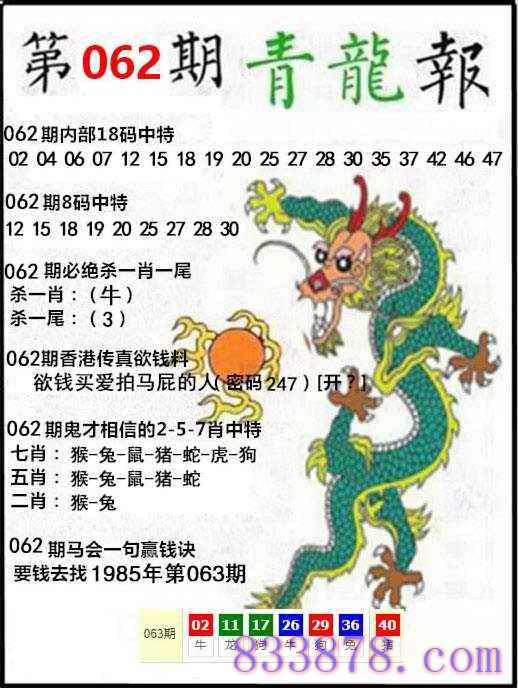 第062期青龍報
062期内部18码中特
02 04 06 07 12 15 18 19 20 25 27 28 30 35 37 42 46 47
062期8码中特
12 15 18 19 20 25 27 28 30
062期必绝杀一肖一尾
杀一肖：（牛）
杀一尾：（3）
062期香港传真欲钱料
欲钱买爱拍马屁的人（密码247）[开？]
062期鬼才相信的2-5-7肖中特
七肖：猴-兔-鼠-猪-蛇-虎-狗
五肖：猴-兔-鼠-猪-蛇
二肖：猴-兔
062期马会一句赢钱诀
要钱去找1985年第063期
063期 02 11 17 26 29 36 40
牛 龙 狗 牛 狗 兔 猪
833878.com